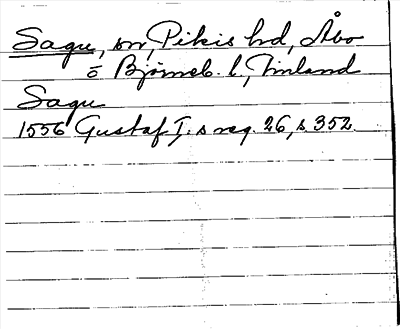 Sagu, sn, Pikis hd, Åbo
o Björneb. l., Finland
Sagu
1556 Gustaf I. s reg. 26, s. 352.